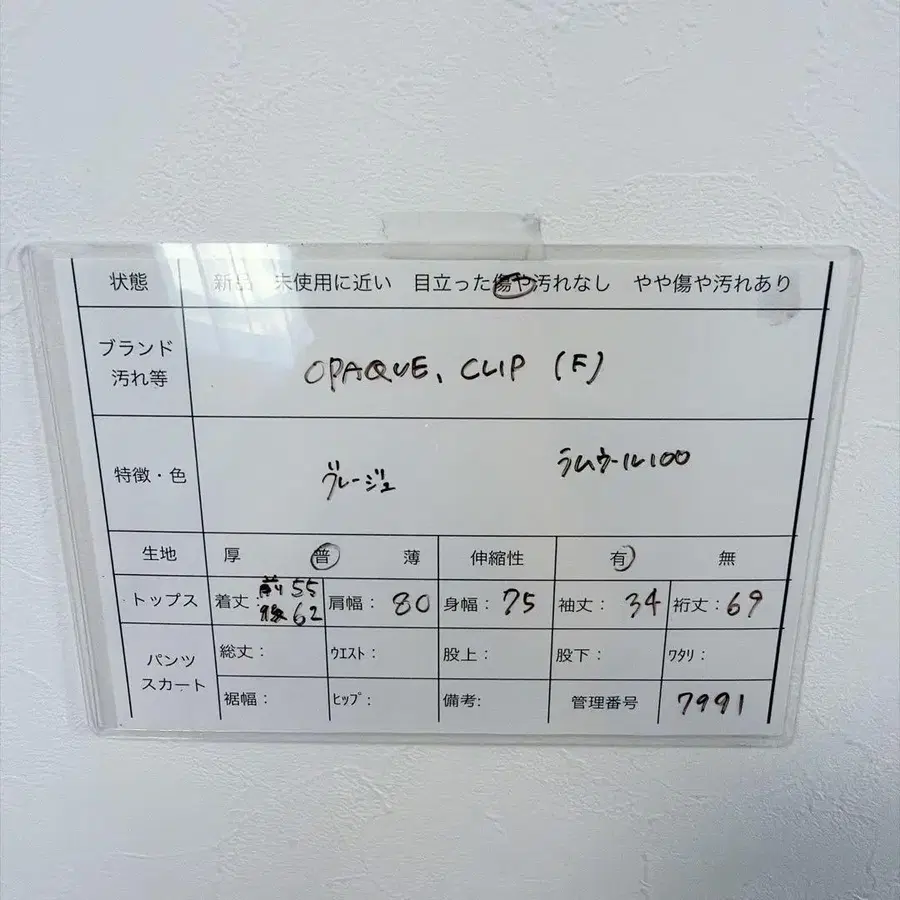 状態 新品 未使用に近い 目立った傷や汚れなし やや傷や汚れあり
ブランド
汚れ等
OPAQUE. CLIP (F)
特徴・色 グレージュ ラムウール100
生地 厚 普 薄 伸縮性 有 無
トップス 着丈: 前り55 後62 肩幅: 80 身幅: 75 袖丈: 34 裄丈: 69
パンツ
スカート
総丈: ウエスト: 股上: 股下: ワタリ:
裾幅: ヒップ: 備考: 管理番号 7991